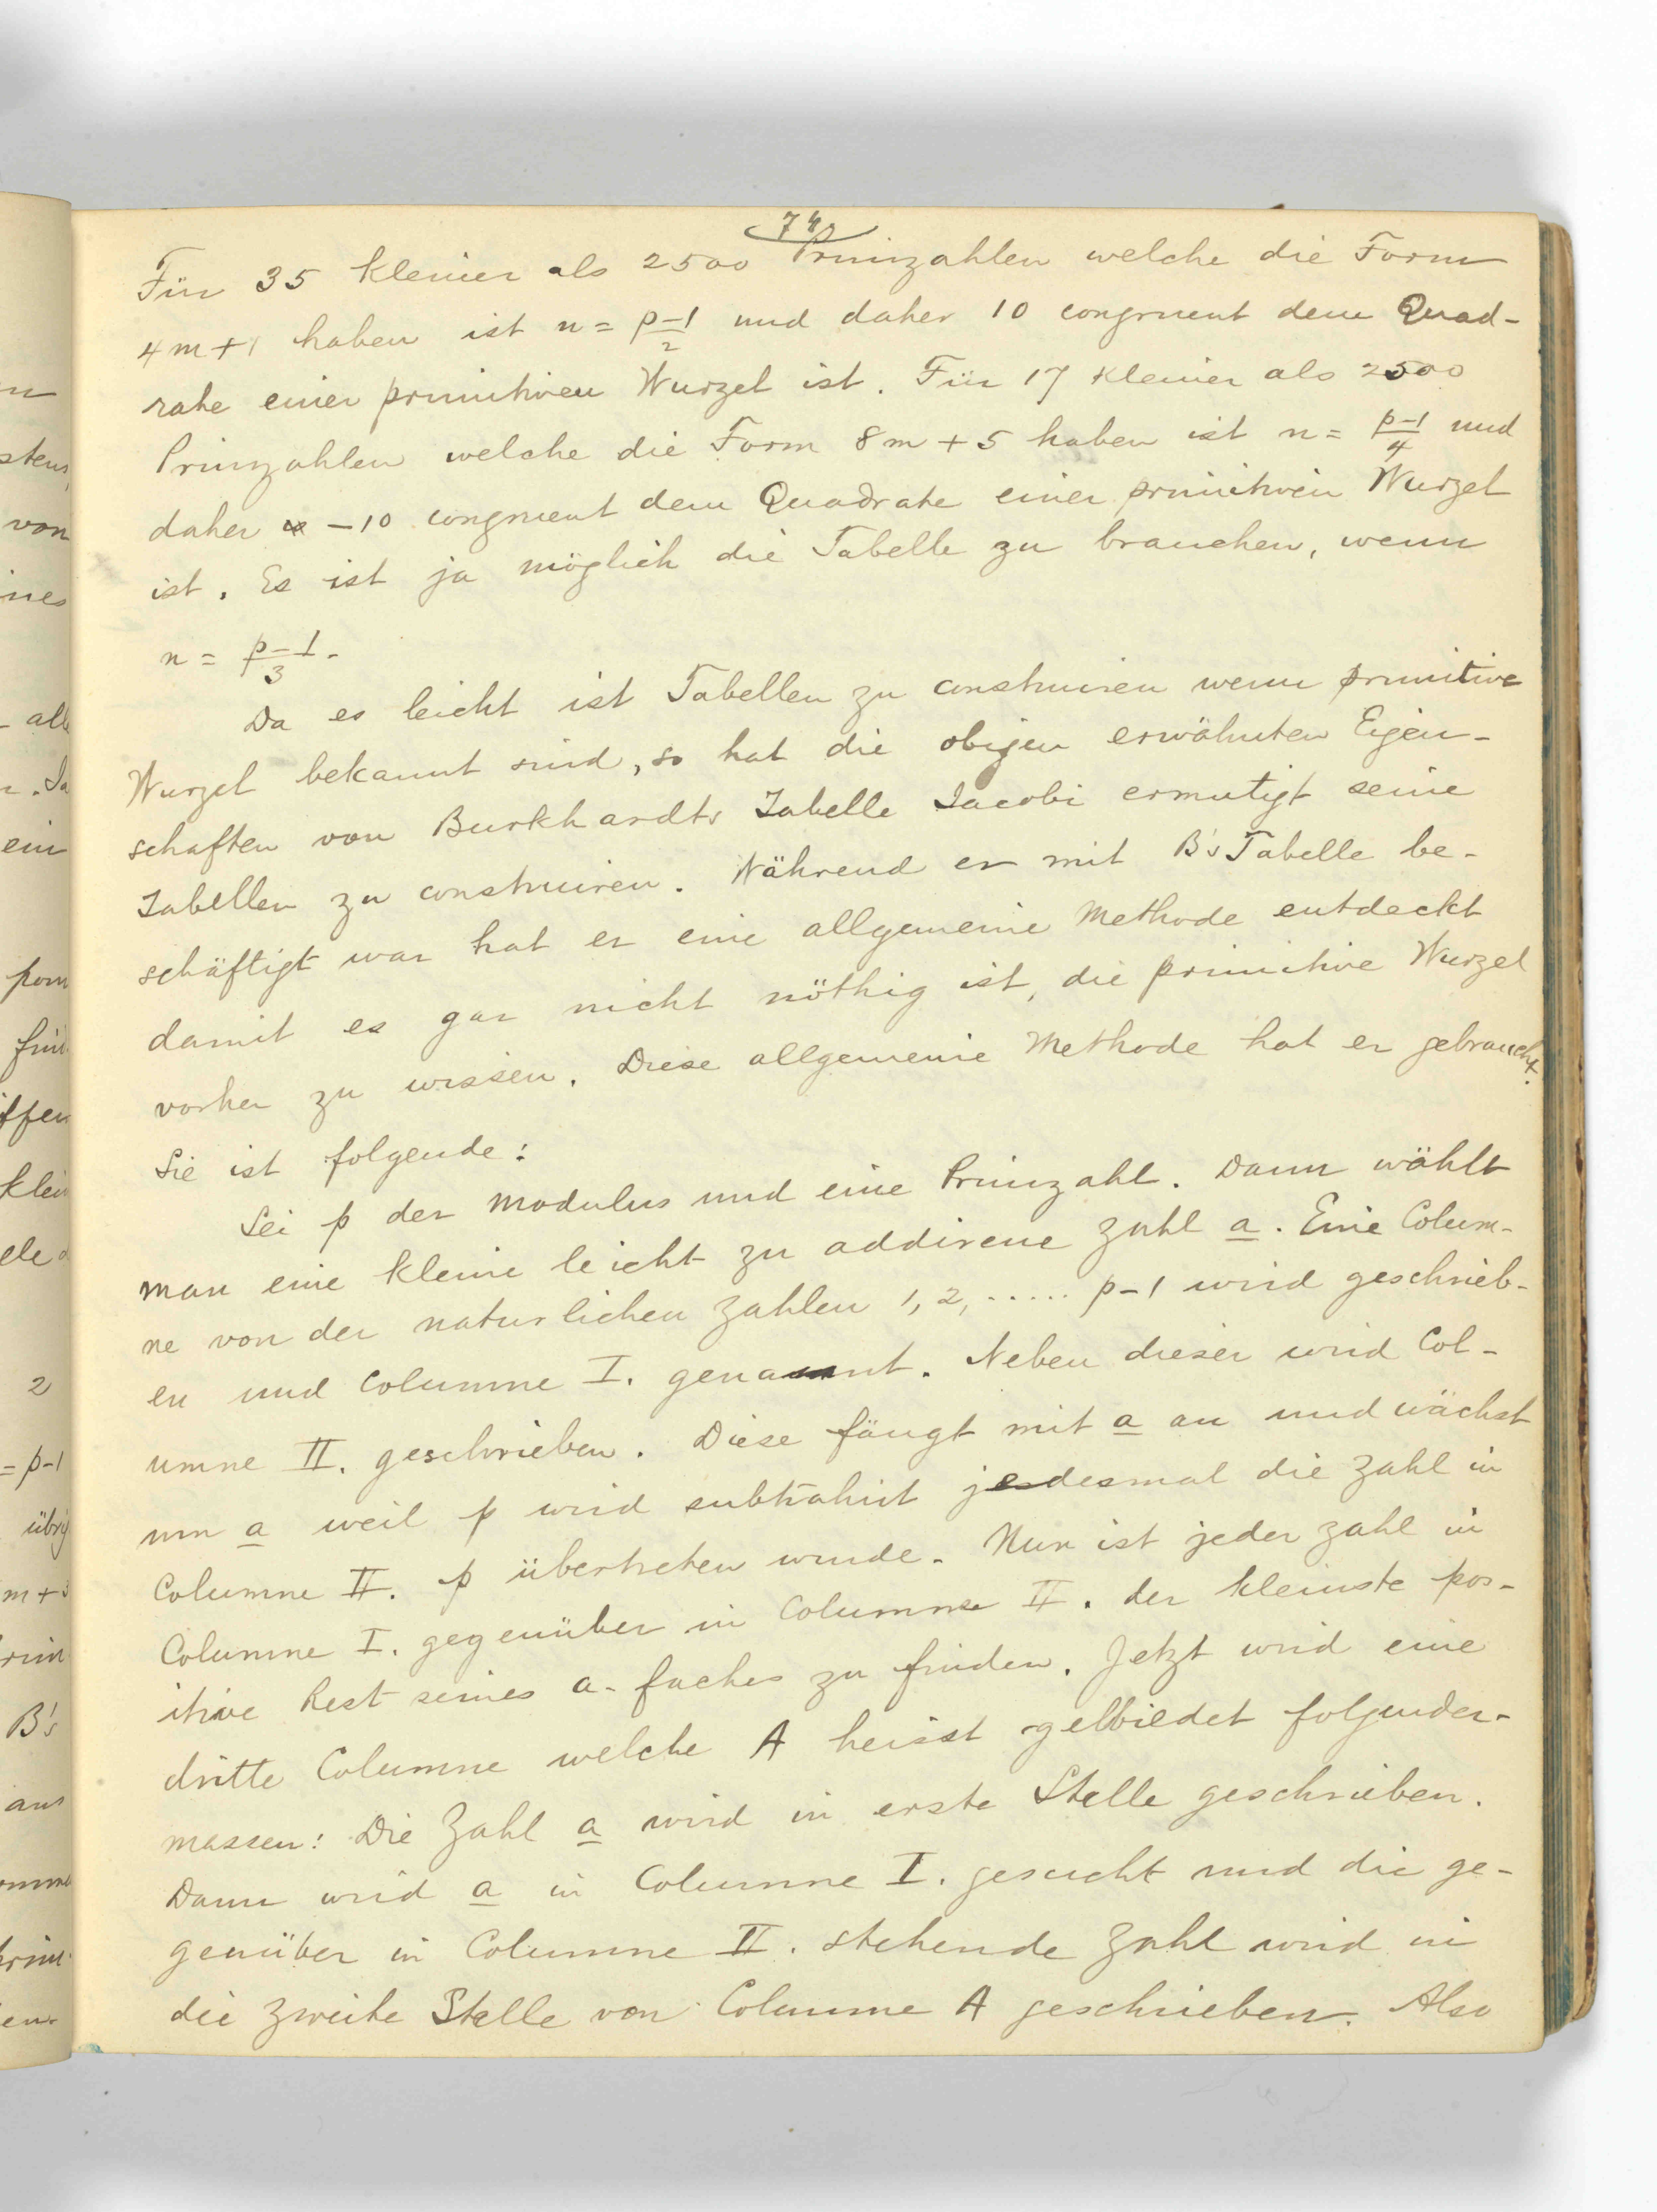 74
Für 35 kleiner als 2500 Primzahlen welche die Form
4m+1 haben ist n = p-1/2 und daher 10 congruent dem Quad-
rate einer primitiven Wurzel ist. Für 17 kleiner als 2500
Primzahlen welche die Form 8m+5 haben ist n = p-1/4 und
daher -10 congruent dem Quadrate einer primitiven Wurzel
ist. Es ist ja möglich die Tabelle zu brauchen, wenn
n = p-1/3.
Da es leicht ist Tabellen zu construiren wenn primitive
Wurzel bekannt sind, so hat die obigen erwähnten Eigen-
schaften von Burkhardts Tabelle Jacobi ermutigt seine
Tabellen zu construiren. Während er mit B's Tabelle be-
schäftigt war hat er eine allgemeine Methode entdeckt
damit es gar nicht nöthig ist, die primitive Wurzel
vorher zu wissen. Diese allgemeine Methode hat er gebraucht.
Sie ist folgende:
Sei p der Modulus und eine Primzahl. Dann wählt
man eine kleine leicht zu addirene Zahl a. Eine Colum-
ne von der naturlichen Zahlen 1, 2, ..... p-1 wird geschrieb-
en und Columne I. genannt. Neben dieser wird Col-
umne II. geschrieben. Diese fängt mit a an und wächst
um a weil p wird subtrahirt jedesmal die Zahl in
Columne II. p übertreten wurde. Nun ist jeder Zahl in
Columne I. gegenüber in Columne II. der kleinste pos-
itive Rest seines a-faches zu finden. Jetzt wird eine
dritte Columne welche A heisst gelbildet folgender-
massen: Die Zahl a wird in erste Stelle geschrieben.
Dann wird a in Columne I. gesucht und die ge-
genüber in Columne II. stehende Zahl wird in
die zweite Stelle von Columne A geschrieben. Also